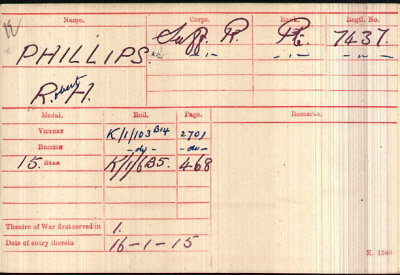 Name. Corps. Rank. Regtl. No.
PHILLIPS. Suff. R. Pte. 7437.
Roberts H. -"- -"- -"-
Medal. Roll. Page. Remarks.
VICTORY K/1/103 B14 2701
BRITISH -do- -do-
15 STAR K/1/6B5. 468
Theatre of War first served in 1.
Date of entry therein 16-1-15
K. 1380